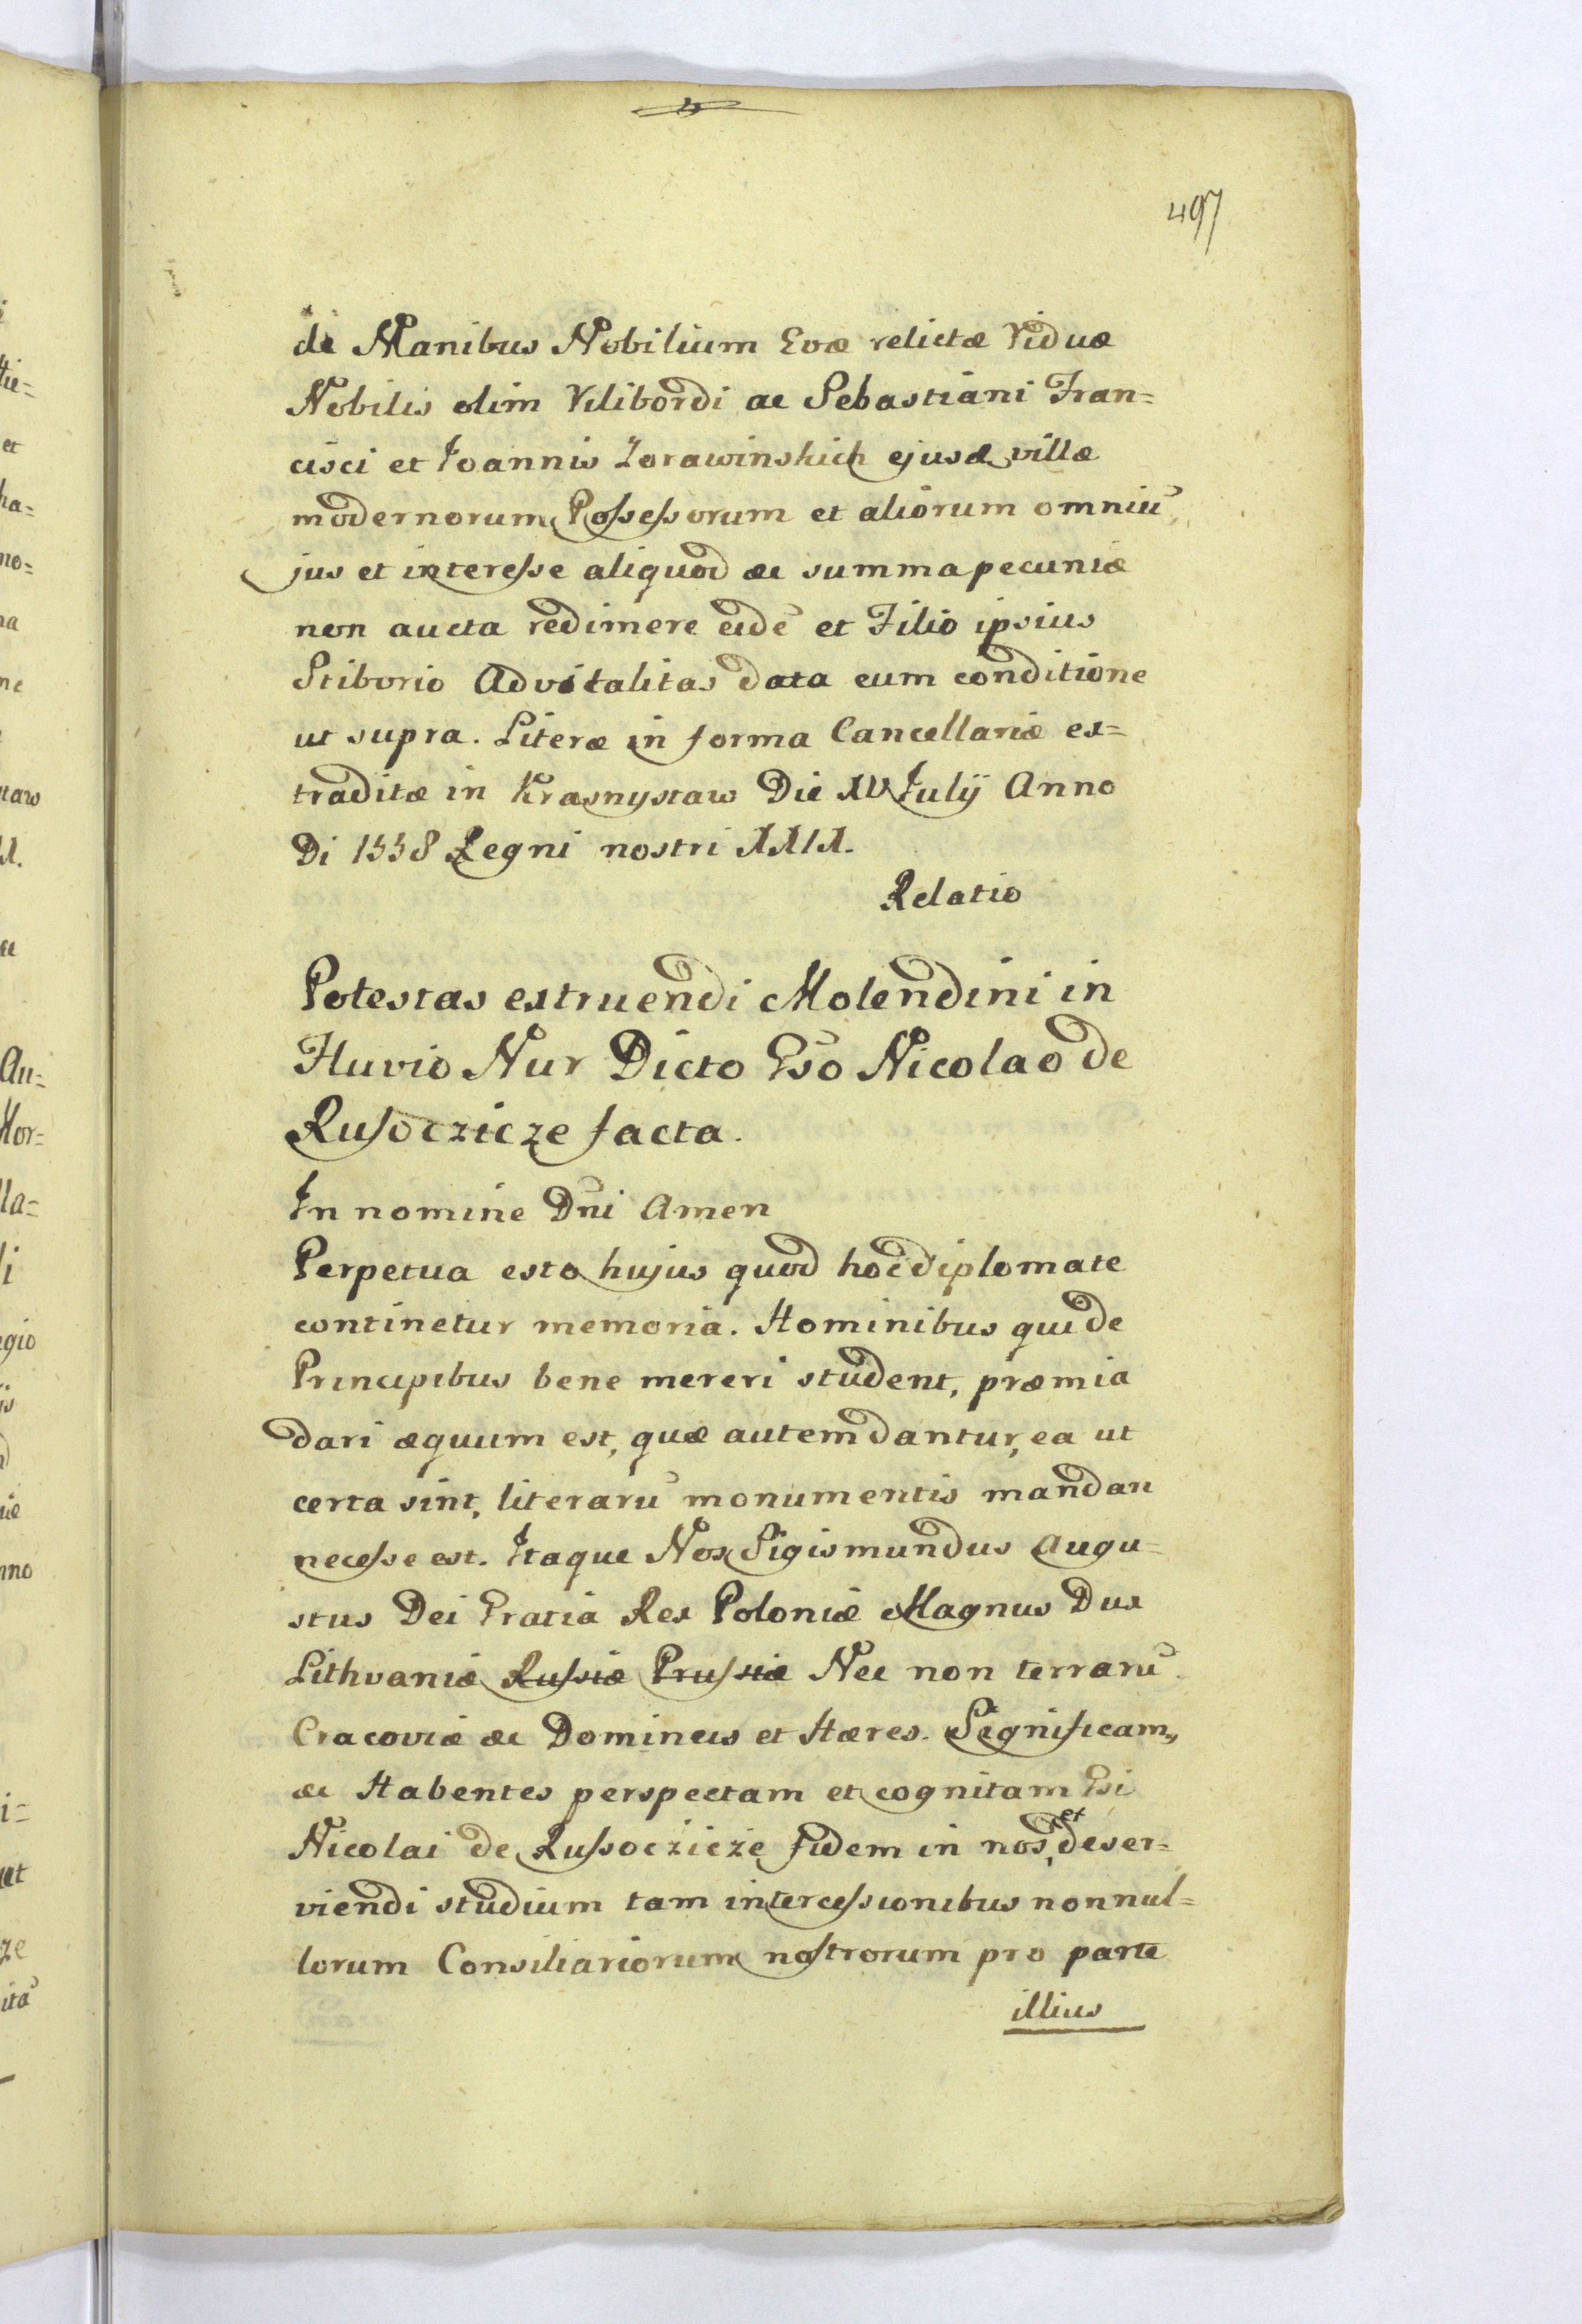 497
de Manibus Nobilium Evæ relictæ Viduæ
Nobilis olim Vilibordi ac Sebastiani Fran=
cisci et Joannis Zorawinskich ejusd villæ
modernorum Possessorum et aliorum omniũ
jus et interesse aliquod &c summa pecuniæ
non aucta redimere eidẽ et Filio ipsius
Stiborio Advitalitas data cum conditione
ut supra. Literæ in forma Cancellariæ ex=
traditæ in Krasnystaw Die XV Julij Anno
Di 1558 Regni nostri XXIX.
Relatio
Potestas extruendi Molendini in
Fluvio Nur Dicto Gso Nicolao de
Russoczicze facta.
In nomine Dñi Amen
Perpetua esto hujus quod hoc diplomate
continetur memoria. Hominibus qui de
Principibus bene mereri student, præmia
dari æquum est, quæ autem dantur, ea ut
certa sint, literarũ monumentis mandari
necesse est. Itaque Nos Sigismundus Augu=
stus Dei Gratia Rex Poloniæ Magnus Dux
Lithvaniæ Russiæ Prussiæ Nec non terrarũ
Cracoviæ &c Dominus et Hæres. Significam,,
&c Habentes perspectam et cognitam Gsi
Nicolai de Russoczicze fidem in nos, et deser=
viendi studium tam intercessionibus nonnul=
lorum Consiliariorum nostrorum pro parte
illius